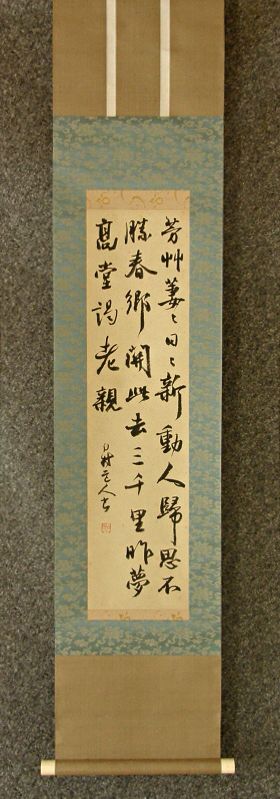 芳艸萋〻日〻新動人歸思不
勝春鄉關此去三千里昨夢
高堂謁老親
道人書